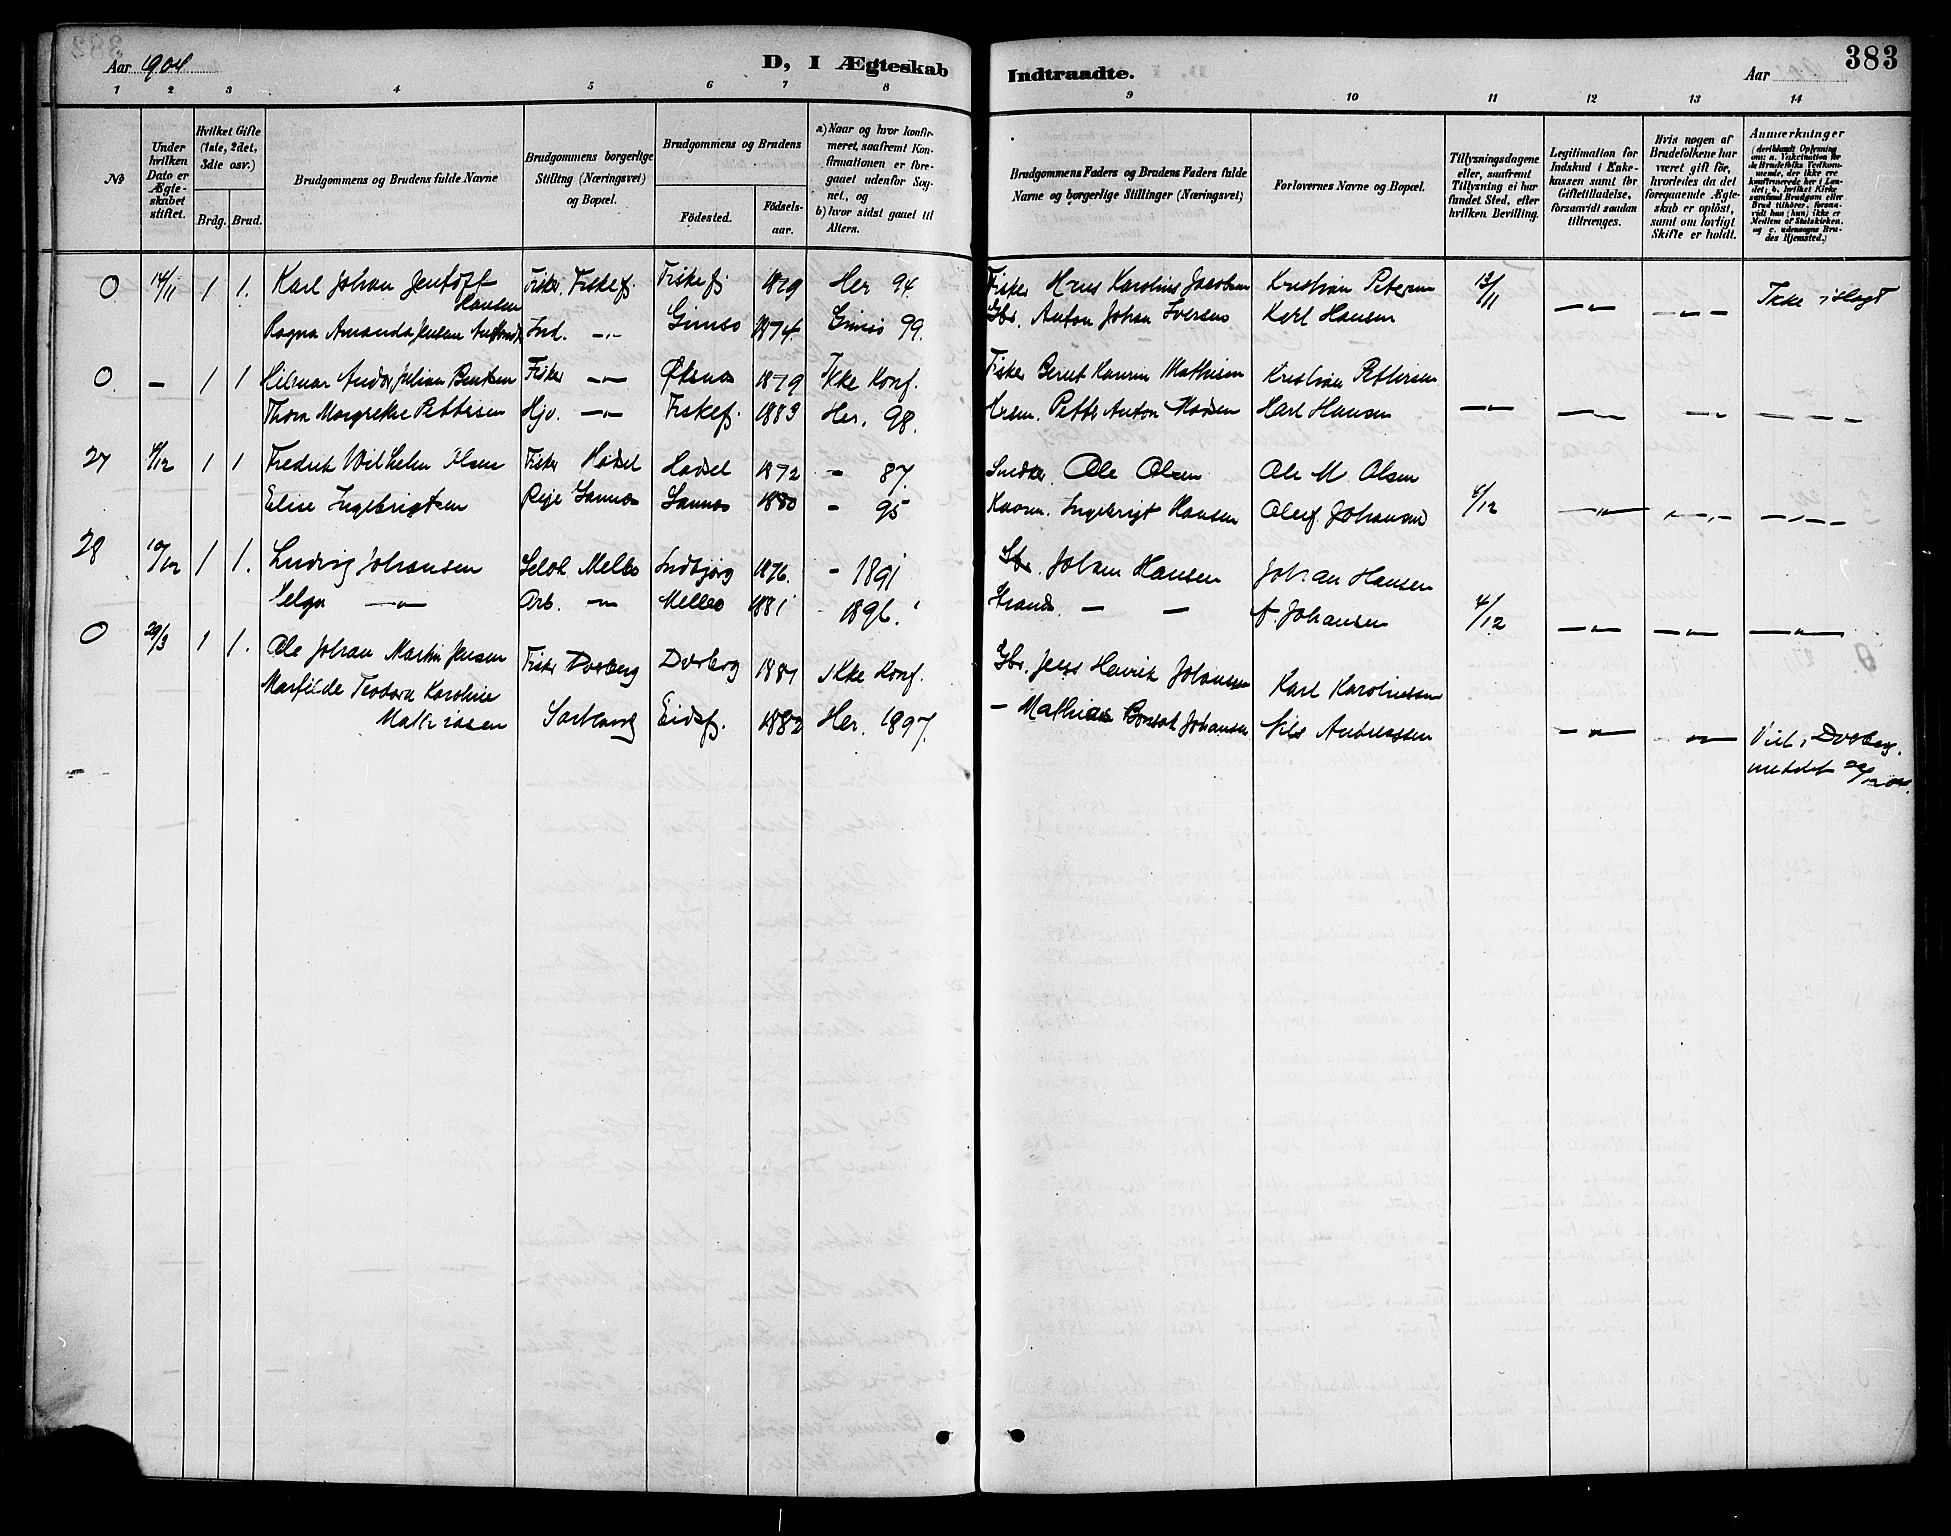 Aar 1904
D, I Ægteskab
Indtraadte.
Aar
383
1 2 3 4 5 6 7 8 9 10 11 12 13 14
№
Under hvilken Dato er Ægteskabet stiftet.
Hvilket Gifte (1ste, 2det, 3die osv.)
Brdg. Brud.
Brudgommens og Brudens fulde Navne
Brudgommens borgerlige Stilling (Næringsvei) og Bopæl.
Brudgommens og Brudens
Födested. Födselsaar.
a) Naar og hvor konfirmeret, saafremt Konfirmationen er foregaaet udenfor Sognet, og
b) hvor sidst gaaet til Alters.
Brudgommens Faders og Brudens Faders fulde Navne og borgerlige Stillinger (Næringsvei)
Forlovernes Navne og Bopæl.
Tillysningsdagene eller, saafremt Tillysning ei har fundet Sted, efter hvilken Bevilling.
Legitimation for Indskud i Enkekassen samt for Giftetilladelse, forsaavidt saadan tiltrænges.
Hvis nogen af Brudefolkene har været gift för, hvorledes da det foregaaende Ægteskab er oplöst, samt om lovligt Skifte er holdt.
Anmærkninger
(deriblandt Oplysning om: a. Vaksination for de Brudefolks Vedkommende, der ikke ere konfirmerede her i Landet; b. hvilket Kirkesamfund Brudgom eller Brud tilhörer, forsaavidt han (hun) ikke er Medlem af Statskirken, og c. udensogns Brudes Hjemsted.)
0 14/11 1 1. Karl Johan Jentoft Hansen Fisker. Fiskefj. Fiskefj 1879 Her 94. Fisker Hans Karolius Jacobsen Kristian Petersen 13/11 Ikke i Slegt
Ragna Amanda Ind. -"- Gimsö 1874. Gimsö 99. Gbr. Anton Johan Iversen Karl Hansen —"— —"—
0. — 1 1 Hilmar Andor Julian Bentsen Fisker —"— Öksnes 1879 Ikke Konf. Fisker Bernt Kaurin Mathisen Kristian Pettersen
Thora Margrethe Pettersen Hjv. —"— Fiskefj. 1883 Her. 98. Husm. Petter Anton Madsen Karl Hansen —"— —"— —"— — — — —
27 4/12 1 1 Fredrik Wilhelm Olsen Fisker Hadsel Hadsel 1872 - 87. Snedker. Ole Olsen Ole M. Olsen
Elise Ingebrigtsen Peje Sannes Sannes 1880 - 95 Ingebrigt Hansen Oluf Johansen 4/12 —"— —"— — — —
28 10/12 1 1. Ludvig Johansen Melbo 1876. - 1891 Gbr. Johan Hansen Johan Hansen
Selga —"— Arb. —"— Melbo 1881 - 1896. Strands. — — A. Johansen 4/12 —"— —"— —"—
0 29/3 1 1. Ole Johan Martin Jensen Fisker Dverberg Dverberg 1881 Ikke Konf. Gbr. Jens Henrik Johansen Karl Karoliussen
Marfilde Teodora Karoline
Mathiassen Eidsfj. 1882 Her. 1897. - Mathias Johansen Nils Andreassen —"— —"— Viet i Dverberg.
meddelt 22/12 04.